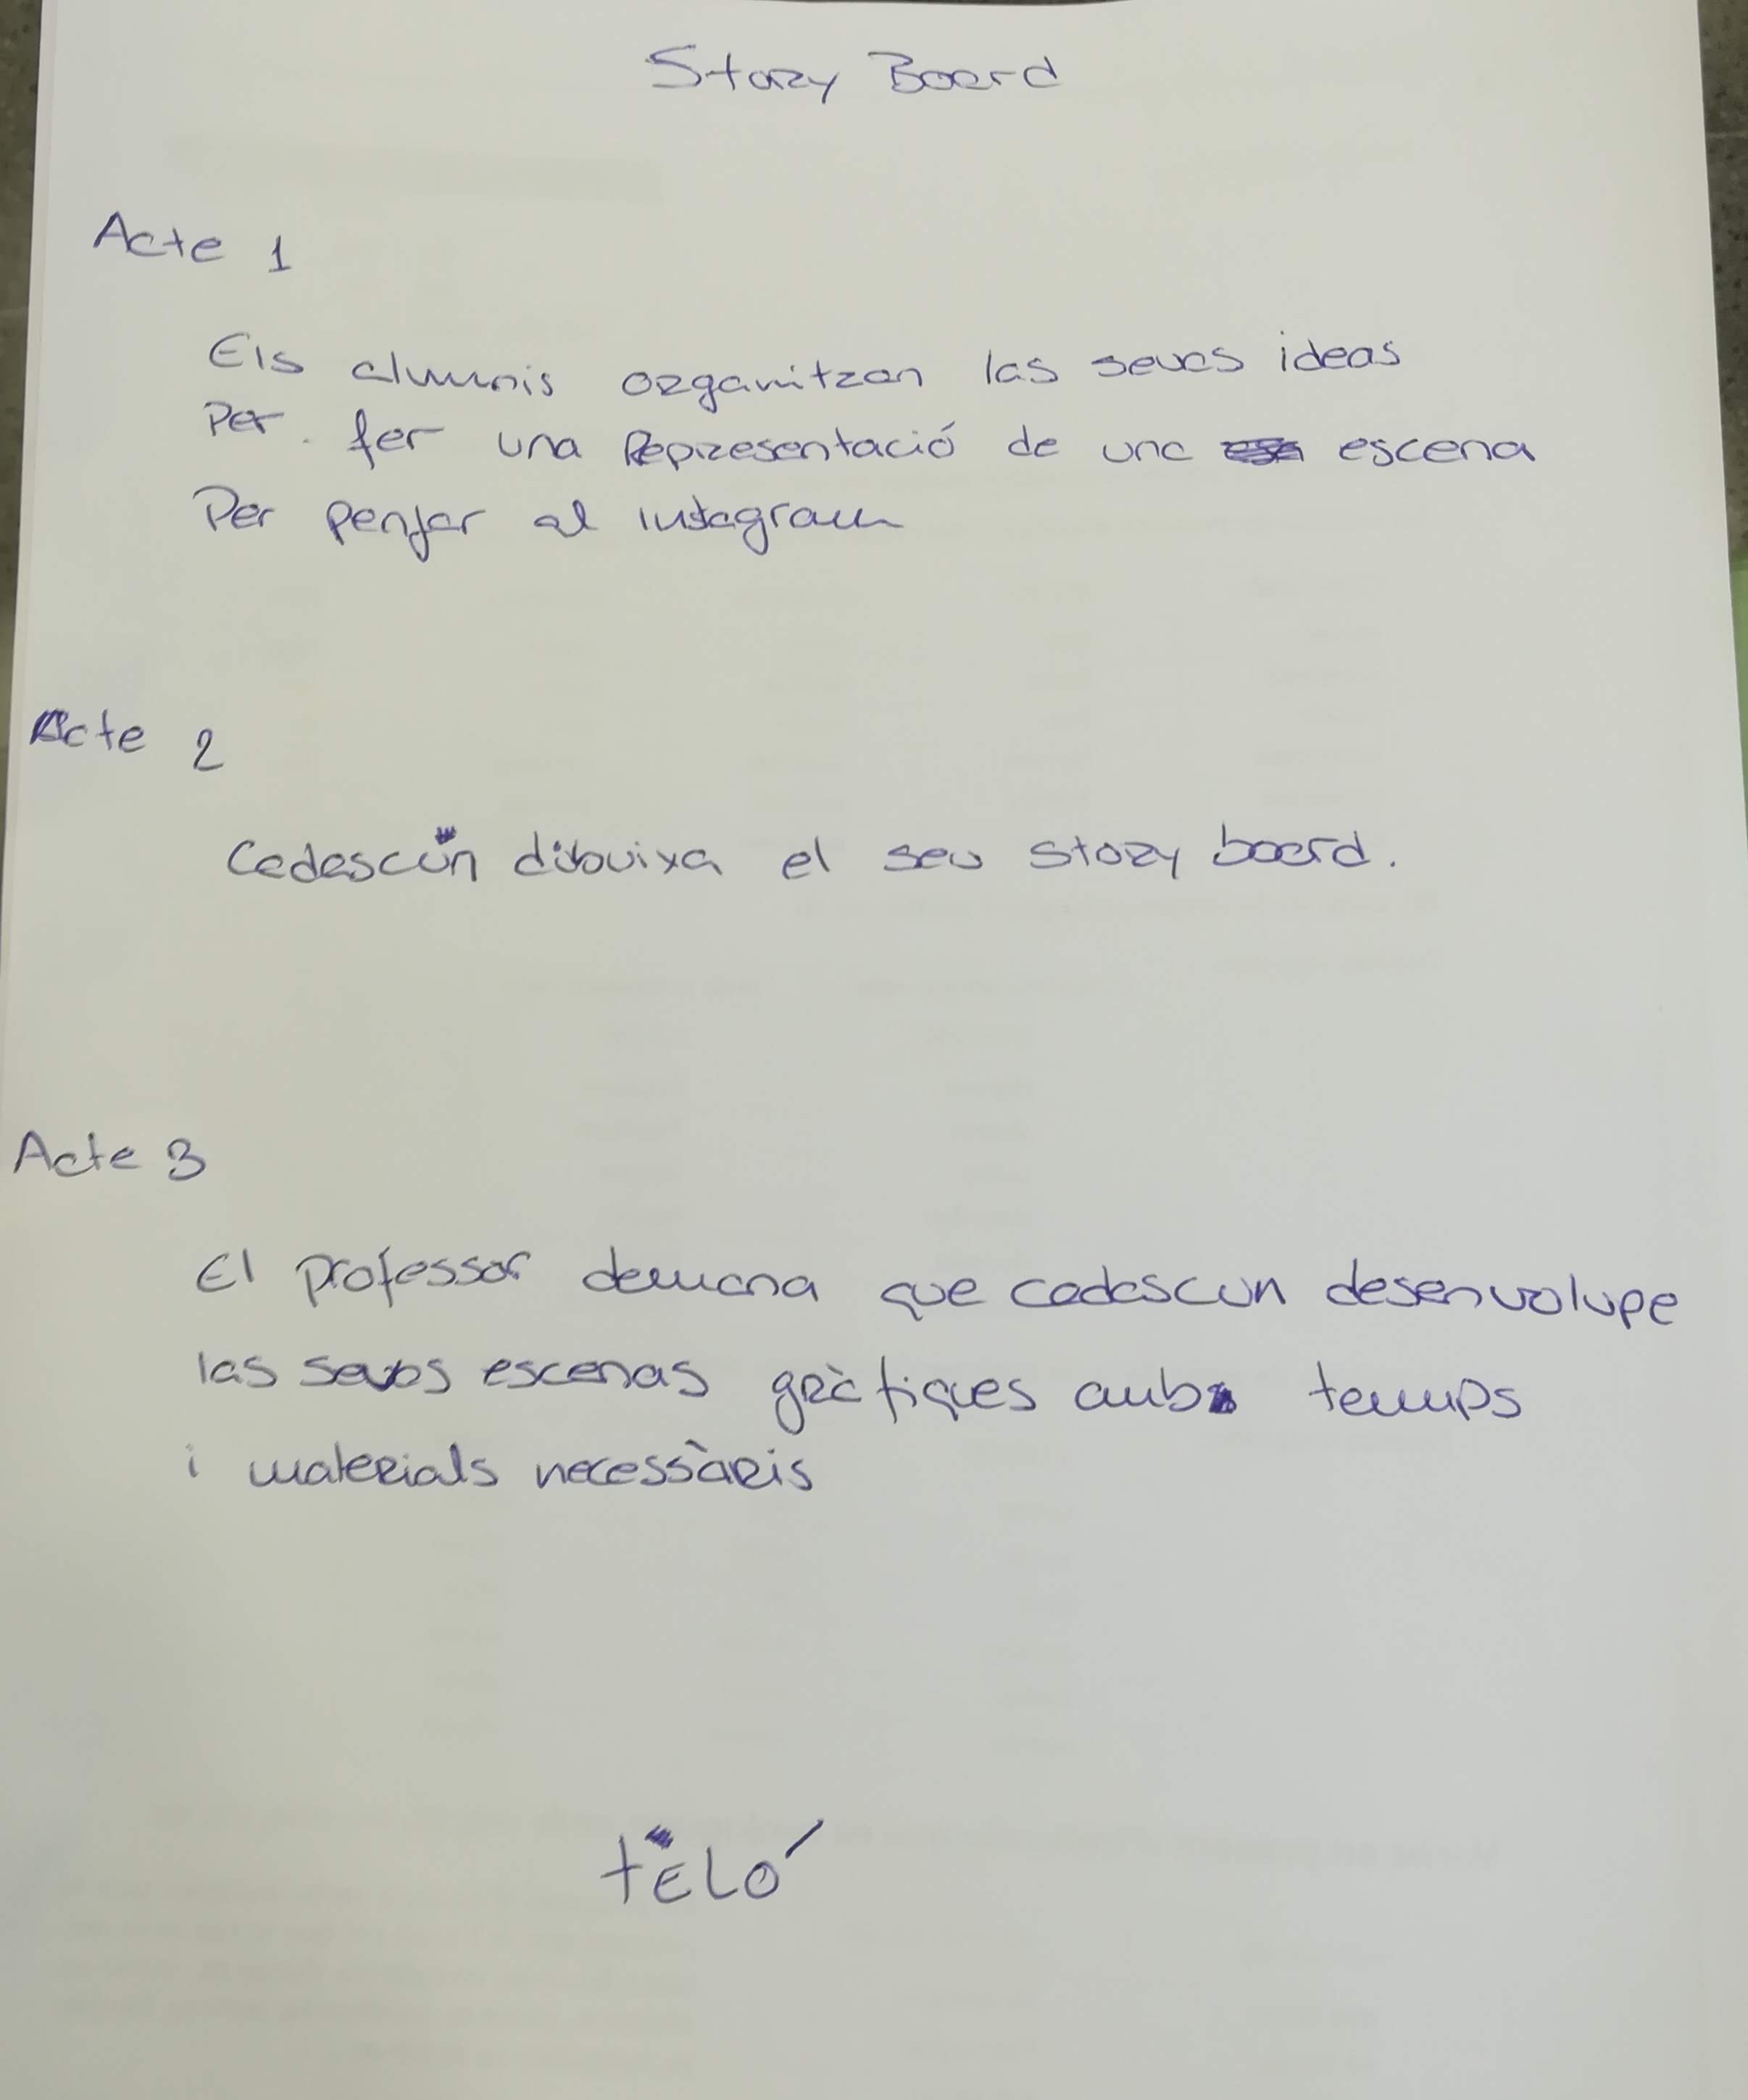 Story Board
Acte 1
Els alumnis organitzan las sevas ideas
Per fer una Representació de una escena
Per penjar al instagram
Acte 2
Cadascun dibuixa el seu story board.
Acte 3
El professor demana que cadascun desenvolupe
las sevas escenas gràfiques amb temps
i materials necessàris
teló